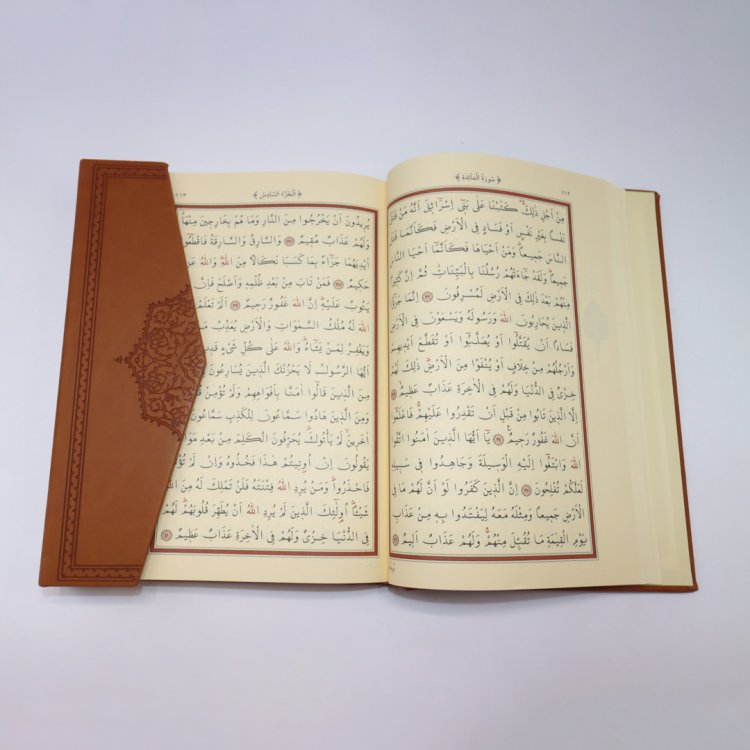 سُورَةُ الْمَائِدَةِ
١١٢
مِنْ اَجْلِ ذٰلِكَ كَتَبْنَا عَلٰى بَنٖٓى اِسْرَٓائٖلَ اَنَّهُ مَنْ قَتَلَ
نَفْساً بِغَيْرِ نَفْسٍ اَوْ فَسَادٍ فِى الْاَرْضِ فَكَاَنَّمَا قَتَلَ
النَّاسَ جَمٖيعاً وَمَنْ اَحْيَاهَا فَكَاَنَّمَٓا اَحْيَا النَّاسَ
جَمٖيعاً وَلَقَدْ جَٓاءَتْهُمْ رُسُلُنَا بِالْبَيِّنَاتِ ثُمَّ اِنَّ كَثٖيراً
مِنْهُمْ بَعْدَ ذٰلِكَ فِى الْاَرْضِ لَمُسْرِفُونَ ﴿٣٢﴾ اِنَّمَا جَزٰٓؤُا
الَّذٖينَ يُحَارِبُونَ اللّٰهَ وَرَسُولَهُ وَيَسْعَوْنَ فِى الْاَرْضِ
فَسَاداً اَنْ يُقَتَّلُٓوا اَوْ يُصَلَّبُٓوا اَوْ تُقَطَّعَ اَيْدٖيهِمْ
وَاَرْجُلُهُمْ مِنْ خِلَافٍ اَوْ يُنْفَوْا مِنَ الْاَرْضِ ذٰلِكَ لَهُمْ
خِزْىٌ فِى الدُّنْيَا وَلَهُمْ فِى الْاٰخِرَةِ عَذَابٌ عَظٖيمٌ ﴿٣٣﴾
اِلَّا الَّذٖينَ تَابُوا مِنْ قَبْلِ اَنْ تَقْدِرُوا عَلَيْهِمْ فَاعْلَمُٓوا
اَنَّ اللّٰهَ غَفُورٌ رَحٖيمٌ ﴿٣٤﴾ يَٓا اَيُّهَا الَّذٖينَ اٰمَنُوا اتَّقُوا
اللّٰهَ وَابْتَغُٓوا اِلَيْهِ الْوَسٖيلَةَ وَجَاهِدُوا فٖى سَبٖيلِهٖ
لَعَلَّكُمْ تُفْلِحُونَ ﴿٣٥﴾ اِنَّ الَّذٖينَ كَفَرُوا لَوْ اَنَّ لَهُمْ مَا فِى
الْاَرْضِ جَمٖيعاً وَمِثْلَهُ مَعَهُ لِيَفْتَدُوا بِهٖ مِنْ عَذَابِ
يَوْمِ الْقِيٰمَةِ مَا تُقُبِّلَ مِنْهُمْ وَلَهُمْ عَذَابٌ اَلٖيمٌ ﴿٣٦﴾
اَلْجُزْءُ السَّادِسُ
١١٣
يُرٖيدُونَ اَنْ يَخْرُجُوا مِنَ النَّارِ وَمَا هُمْ بِخَارِجٖينَ مِنْهَا
وَلَهُمْ عَذَابٌ مُقٖيمٌ ﴿٣٧﴾ وَالسَّارِقُ وَالسَّارِقَةُ فَاقْطَعُٓوا
اَيْدِيَهُمَا جَزَٓاءً بِمَا كَسَبَا نَكَالاً مِنَ اللّٰهِ وَاللّٰهُ
حَكٖيمٌ ﴿٣٨﴾ فَمَنْ تَابَ مِنْ بَعْدِ ظُلْمِهٖ وَاَصْلَحَ فَاِنَّ
يَتُوبُ عَلَيْهِ اِنَّ اللّٰهَ غَفُورٌ رَحٖيمٌ ﴿٣٩﴾ اَلَمْ تَعْلَمْ
اللّٰهَ لَهُ مُلْكُ السَّمٰوَاتِ وَالْاَرْضِ يُعَذِّبُ
وَيَغْفِرُ لِمَنْ يَشَٓاءُ وَاللّٰهُ عَلٰى كُلِّ شَىْءٍ
اَيُّهَا الرَّسُولُ لَا يَحْزُنْكَ الَّذٖينَ يُسَارِعُونَ
مِنَ الَّذٖينَ قَالُٓوا اٰمَنَّا بِاَفْوَاهِهِمْ وَلَمْ تُؤْمِنْ
وَمِنَ الَّذٖينَ هَادُوا سَمَّاعُونَ لِلْكَذِبِ سَمَّاعُونَ
اٰخَرٖينَ لَمْ يَاْتُوكَ يُحَرِّفُونَ الْكَلِمَ مِنْ بَعْدِ
يَقُولُونَ اِنْ اُوتٖيتُمْ هٰذَا فَخُذُوهُ وَاِنْ لَمْ
فَاحْذَرُوا وَمَنْ يُرِدِ اللّٰهُ فِتْنَتَهُ فَلَنْ تَمْلِكَ لَهُ مِنَ
شَيْـٔاً اُو۬لٰٓئِكَ الَّذٖينَ لَمْ يُرِدِ اللّٰهُ اَنْ يُطَهِّرَ قُلُوبَهُمْ لَهُمْ
فِى الدُّنْيَا خِزْىٌ وَلَهُمْ فِى الْاٰخِرَةِ عَذَابٌ عَظٖيمٌ ﴿٤١﴾